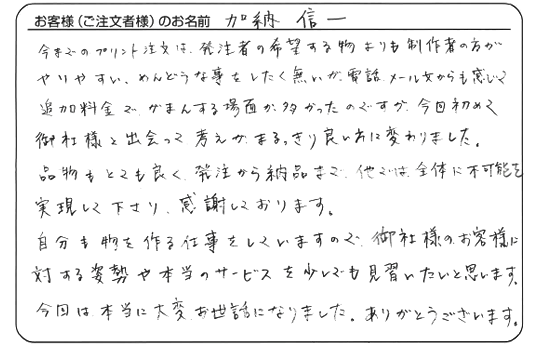 お客様(ご注文者様)のお名前 加納 信一
今までのプリント注文は、発注者の希望する物よりも制作者の方が
やりやすい、めんどうな事をしたく無いが、電話、メール文からも感じて
追加料金で、がまんする場面が多かったのですが、今回初めて
御社様と出会って考えがまるっきり良い方に変わりました。
品物もとても良く、発注から納品まで、他では、全体に不可能を
実現して下さり、感謝しております。
自分も物を作る仕事をしていますので、御社様のお客様に
対する姿勢や本当のサービスを少しでも見習いたいと思います。
今回は本当に大変、お世話になりました。ありがとうございます。